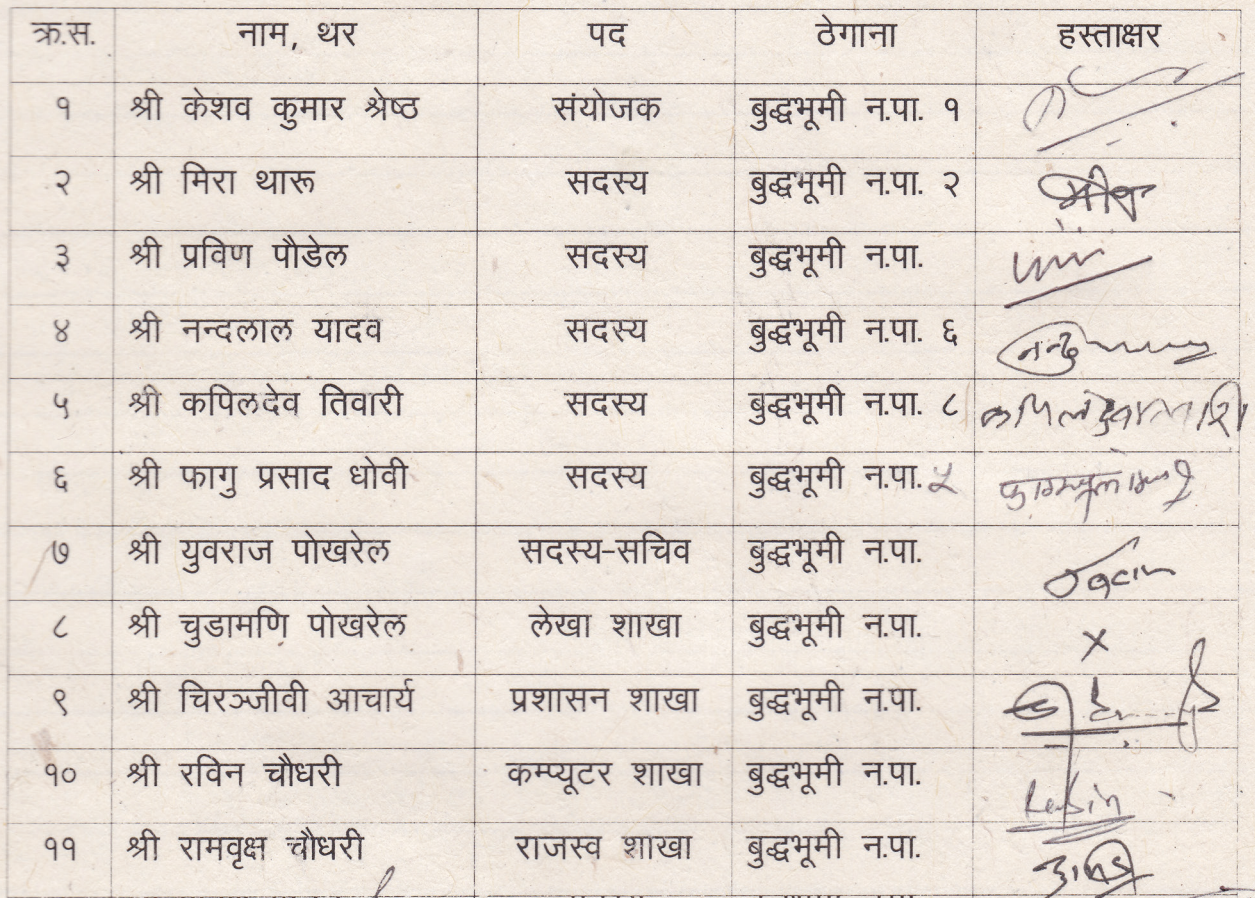 क्र.स. नाम, थर पद ठेगाना हस्ताक्षर
१ श्री केशव कुमार श्रेष्ठ संयोजक बुद्धभूमी न.पा. १
२ श्री मिरा थारू सदस्य बुद्धभूमी न.पा. २
३ श्री प्रविण पौडेल सदस्य बुद्धभूमी न.पा.
४ श्री नन्दलाल यादव सदस्य बुद्धभूमी न.पा. ६
५ श्री कपिलदेव तिवारी सदस्य बुद्धभूमी न.पा. ८
६ श्री फागु प्रसाद धोवी सदस्य बुद्धभूमी न.पा. ५
७ श्री युवराज पोखरेल सदस्य-सचिव बुद्धभूमी न.पा.
८ श्री चुडामणि पोखरेल लेखा शाखा बुद्धभूमी न.पा. x
९ श्री चिरञ्जीवी आचार्य प्रशासन शाखा बुद्धभूमी न.पा.
१० श्री रविन चौधरी कम्प्यूटर शाखा बुद्धभूमी न.पा.
११ श्री रामवृक्ष चौधरी राजस्व शाखा बुद्धभूमी न.पा.